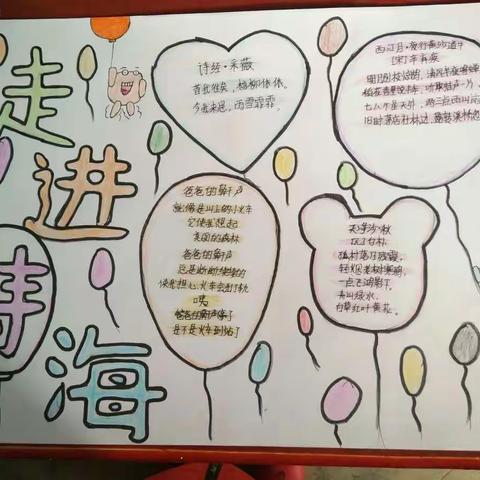 走
进
诗
海
诗经·采薇
昔我往矣，杨柳依依。
今我来思，雨雪霏霏。
西江月·夜行黄沙道中
[宋]辛弃疾
明月别枝惊鹊，清风半夜鸣蝉
稻花香里说丰年，听取蛙声一片。
七八个星天外，两三点雨山前
旧时茅店社林边，路转溪桥忽
爸爸的鼾声
就像是山上的小火车
它使我想起
美丽的森林
爸爸的鼾声
总是断断续续的
使我担心火车会出了轨
咦
爸爸的鼾声停了
是不是火车到站了
天净沙·秋
[元]白朴
孤村落日残霞，
轻烟老树寒鸦，
一点飞鸿影下。
青山绿水，
白草红叶黄花。